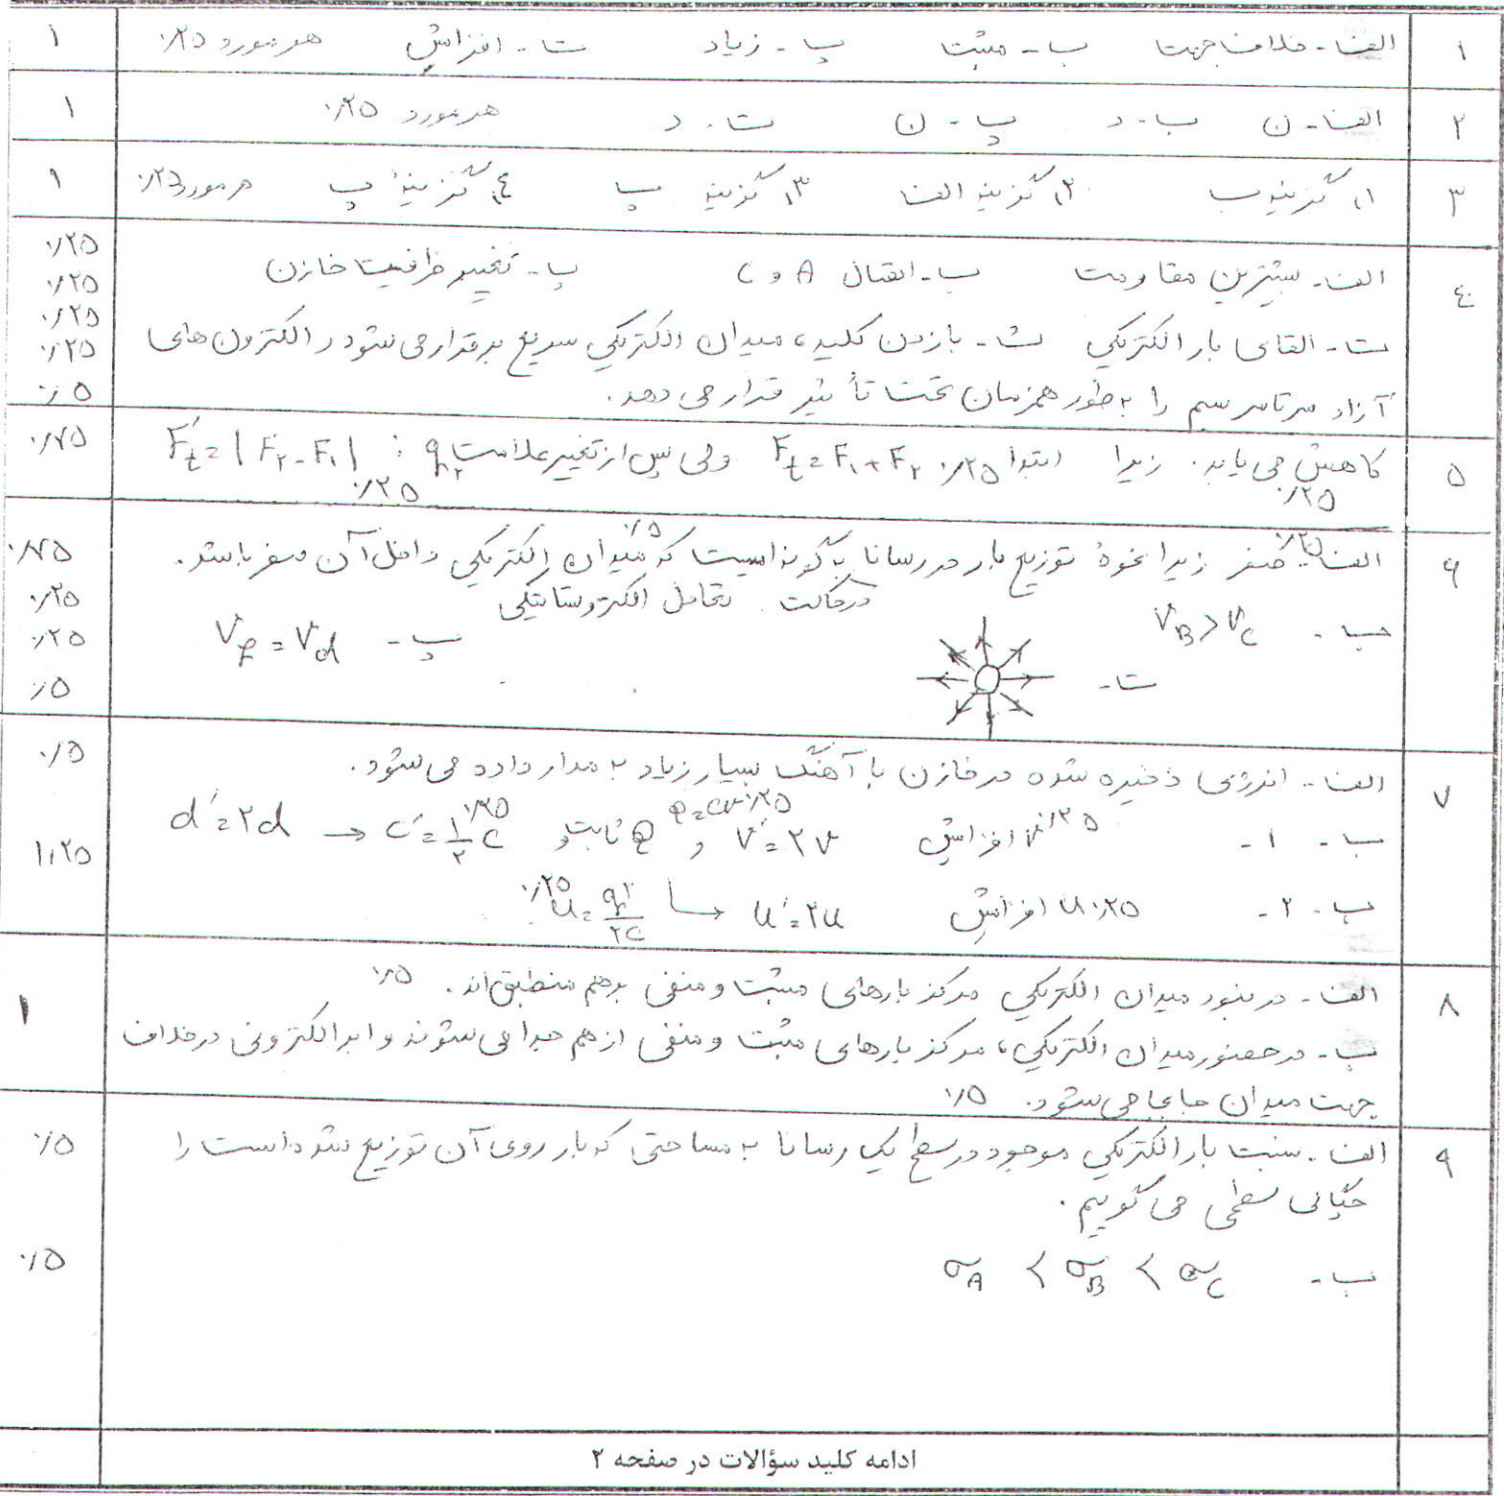 ۱ الف - خلاف جهت ب - مثبت پ - زیاد ت - افزایش هر مورد ۰/۲۵ ۱
۲ الف - ن ب - د پ - ن ت - د هر مورد ۰/۲۵ ۱
۳ ۱) گزینه ب ۲) گزینه الف ۳) گزینه پ ۴) گزینهٔ پ هر مورد ۰/۲۵ ۱
۴ الف - بیشترین مقاومت ب - اتصال A و C پ - تغییر ظرفیت خازن ۰/۲۵ ۰/۲۵ ۰/۲۵
ت - القای بار الکتریکی ث - با زدن کلید، میدان الکتریکی سریع برقرار می شود و الکترون های ۰/۲۵
آزاد سرتاسر سیم را به طور همزمان تحت تأثیر قرار می دهد. ۰/۵
۵ کاهش می یابد. ۰/۲۵ زیرا ابتدا ۰/۲۵ Ft = F۱ + F۲ ولی پس از تغییر علامت q۲ : F't = | F۲ - F۱ | ۰/۲۵ ۰/۷۵
۶ الف - صفر ۰/۲۵ زیرا نحوهٔ توزیع بار در رسانا به گونه ایست که میدان الکتریکی داخل آن صفر باشد. ۰/۵ ۰/۷۵
در حالت تعادل الکتروستاتیکی ۰/۲۵
ب - VB > VC پ - Vf = Vd ۰/۲۵
ت - ۰/۵
۷ الف - انرژی ذخیره شده در خازن با آهنگ بسیار زیاد به مدار داده می شود. ۰/۵
ب - ۱ - V ۰/۲۵ افزایش V' = ۲V و Q ثابت و q = cv ۰/۲۵ C' = ۱/۲ C ۰/۲۵ → d' = ۲d ۱/۲۵
ب - ۲ - U ۰/۲۵ افزایش U' = ۲U U = q۲/۲C ۰/۲۵
۸ الف - در نبود میدان الکتریکی مرکز بارهای مثبت و منفی برهم منطبق اند. ۰/۵
ب - در حضور میدان الکتریکی، مرکز بارهای مثبت و منفی از هم جدا می شوند و ابر الکترونی در خلاف ۱
جهت میدان جابجا می شود. ۰/۵
۹ الف - نسبت بار الکتریکی موجود در سطح یک رسانا به مساحتی که بار روی آن توزیع شده است را ۰/۵
چگالی سطحی می گوییم.
ب - σA < σB < σC ۰/۵
ادامه کلید سؤالات در صفحه ۲